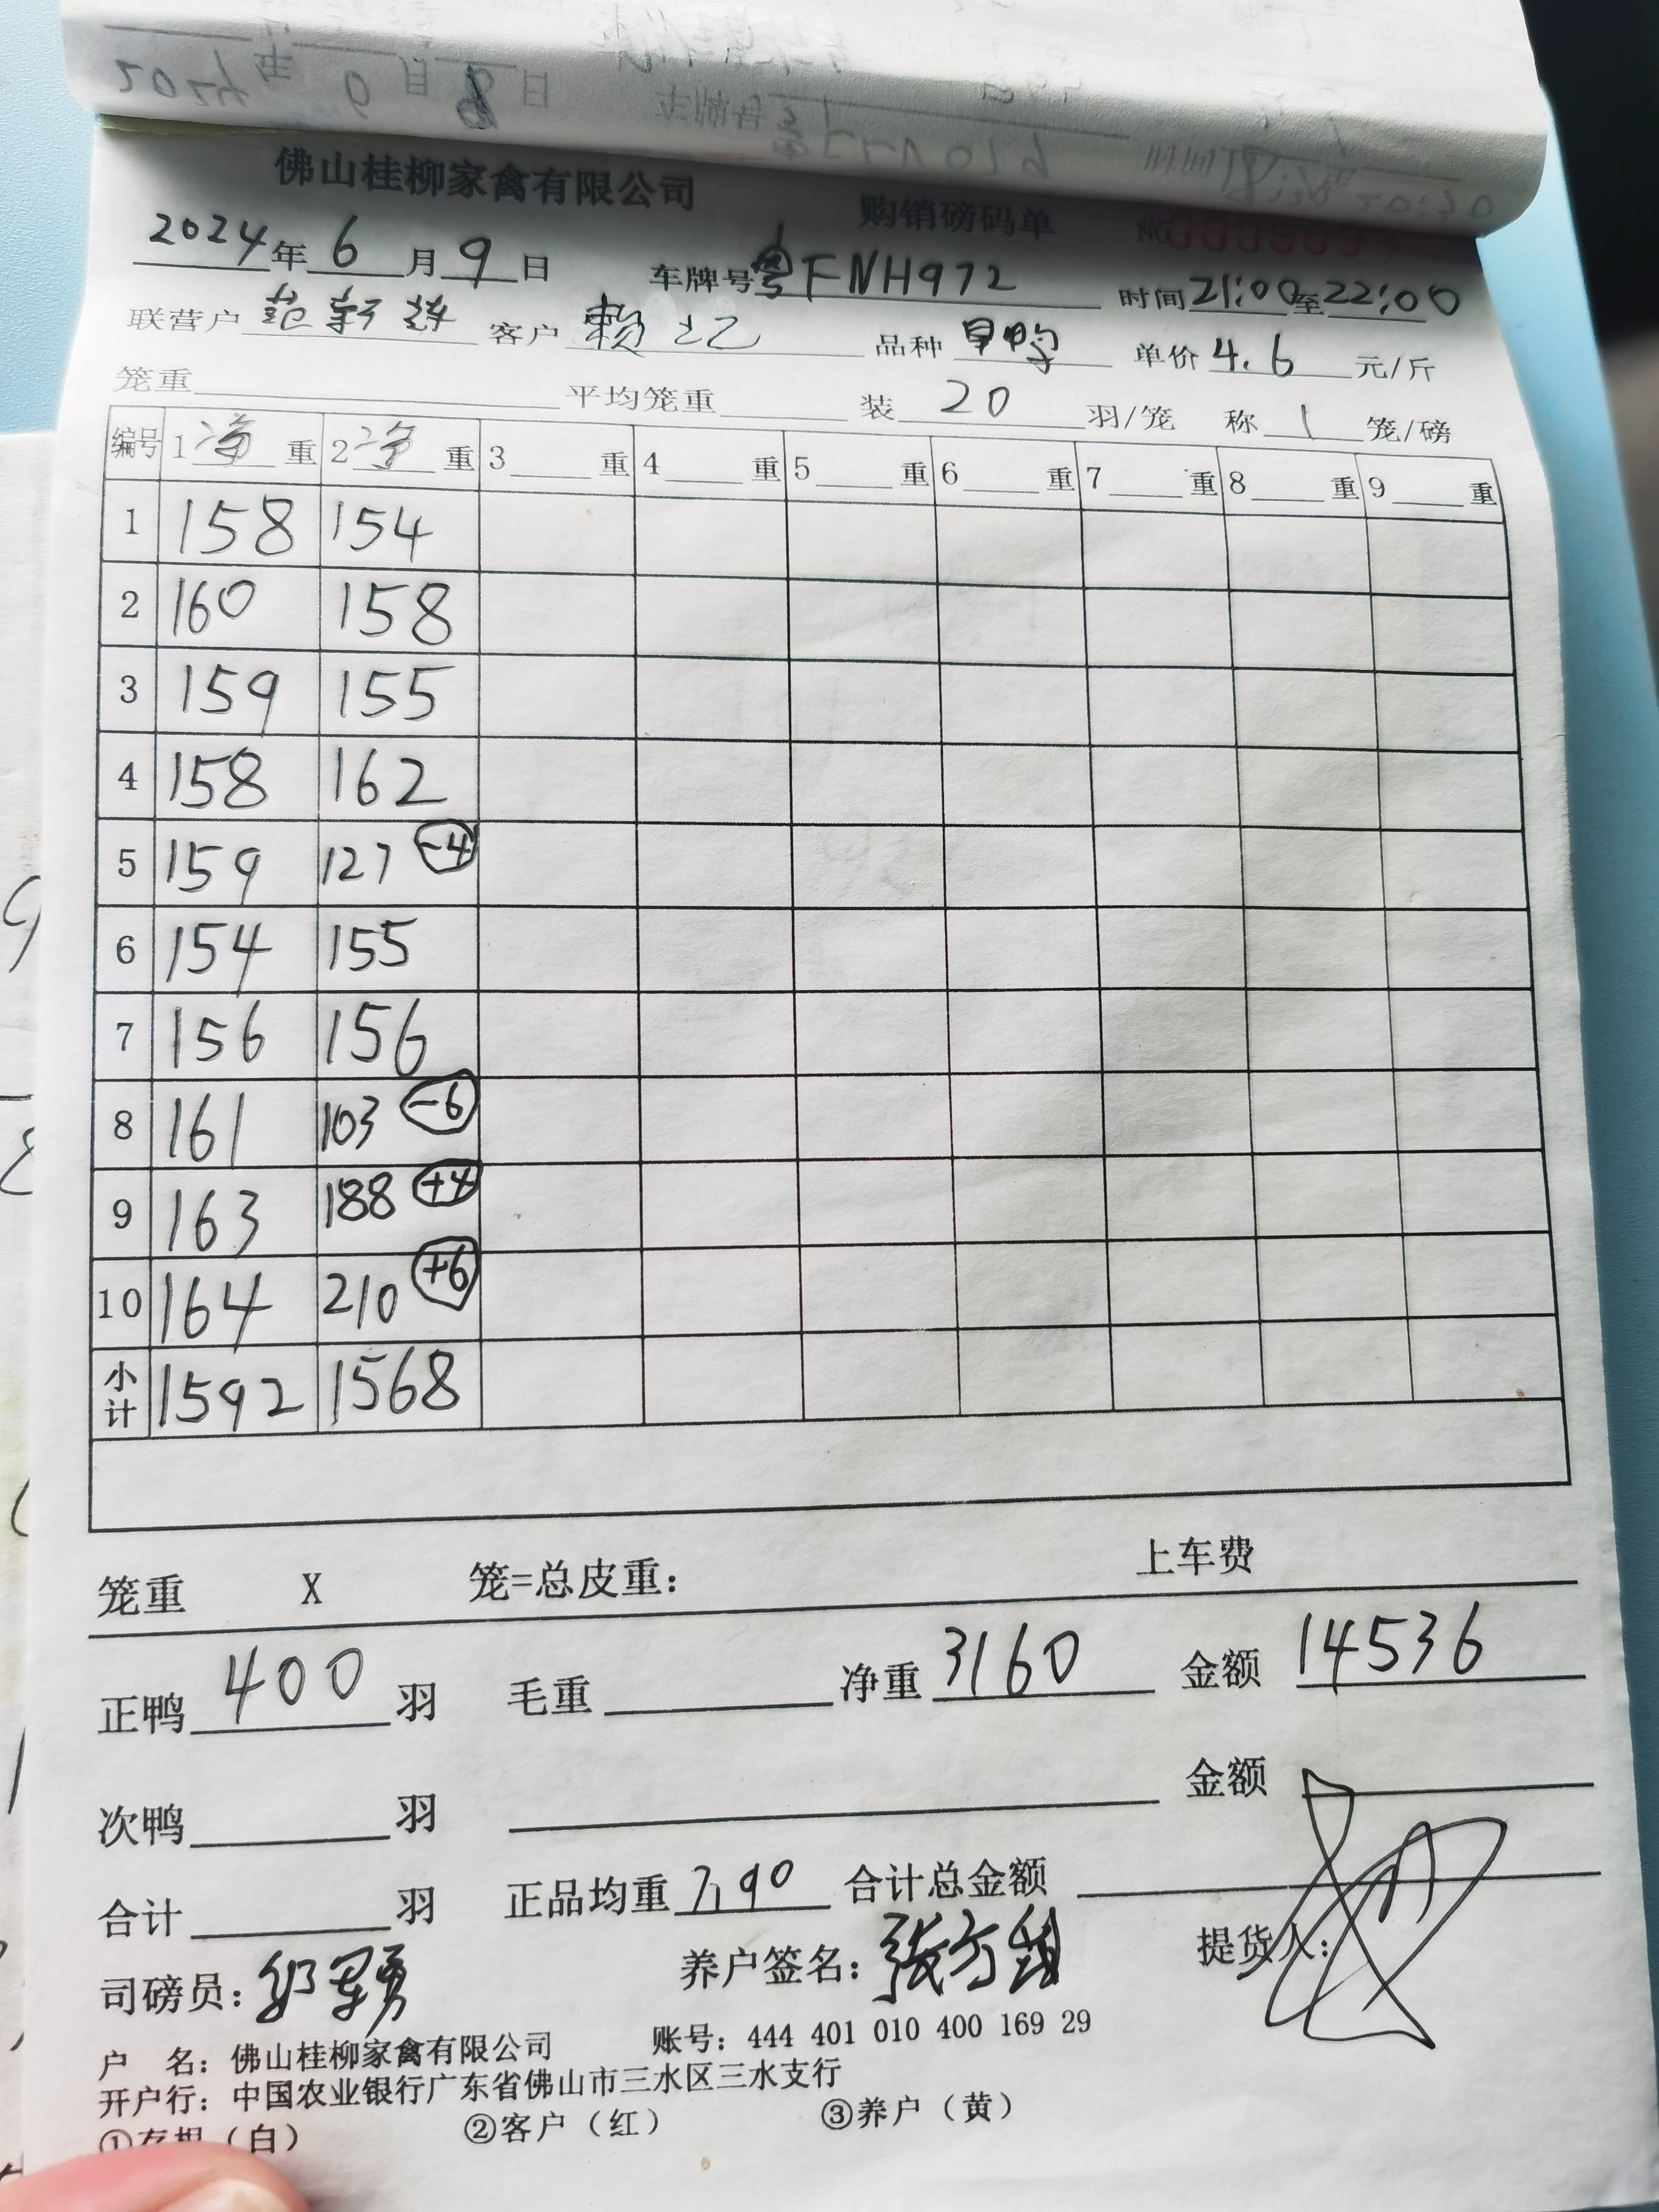 佛山桂柳家禽有限公司 购销磅码单 NO
2024年6月9日 车牌号粤FNH972 时间21:00至22:00
联营户 客户 赖 品种 单价4.6元/斤
笼重 平均笼重 装20羽/笼 称1笼/磅
编号 1净重 2净重 3重 4重 5重 6重 7重 8重 9重
1 158 154
2 160 158
3 159 155
4 158 162
5 159 127 -4
6 154 155
7 156 156
8 161 103 -6
9 163 188 +4
10 164 210 +6
小计 1592 1568
笼重 X 笼=总皮重： 上车费
正鸭400羽 毛重 净重3160 金额14536
次鸭 羽 金额
合计 羽 正品均重7.90 合计总金额
司磅员： 养户签名： 提货人：
户 名：佛山桂柳家禽有限公司 账号：444 401 010 400 169 29
开户行：中国农业银行广东省佛山市三水区三水支行
①存根（白） ②客户（红） ③养户（黄）